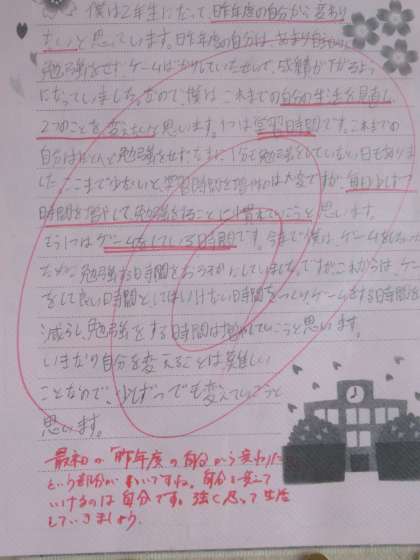 僕は2年生になって、昨年度の自分から変わり
たいと思っています。昨年度の自分は、あまり自分から
勉強をせず、ゲームばかりしていたせいで、成績が下がるよう
になっていました。なので、僕は、これまでの自分の生活を見直し、
2つのことを変えたいと思います。1つは学習時間です。これまでの
自分はほとんど勉強をせず、たまに1分も勉強をしていない日もありま
した。ここまで少ないと、学習時間を増やすのは大変ですが、毎日少しずつ
時間を増やして勉強をすることに慣れていこうと思います。
もう1つはゲームをしている時間です。今まで僕は、ゲームをしたい
ために勉強する時間をおろそかにしていました。ですが、これからは、ゲーム
をして良い時間としてはいけない時間をつくり、ゲームをする時間を
減らし、勉強をする時間は増やしていこうと思います。
いきなり自分を変えることは難しい
ことなので、少しずつでも変えていこうと
思います。
最初の「昨年度の自分から変わりたい」
という部分がいいですね。自分を変えて
いけるのは自分です。強く思って生活
していきましょう。